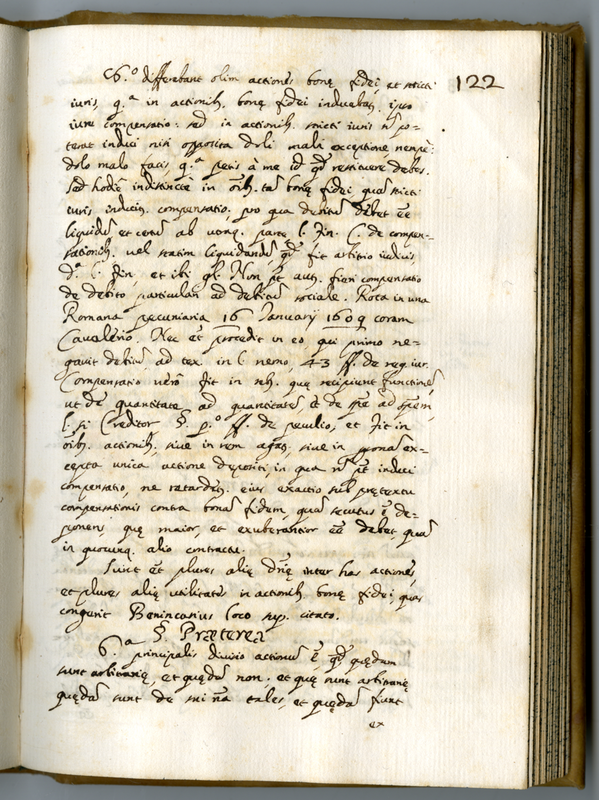 122
6.º differebant olim actiones bonę fidei, et stricti
iuris, q.ª in actionib. bonę fidei inducebat. ipso
iure compensatio: sed in actionib. stricti iuris nõ po=
terat induci nisi opposita doli mali exceptione, nempè:
dolo malo facis, q.ª petis à me id qd̃ restituere debes.
sed hodiè indistinctè in õib. tam bonę fidei quam stricti
iuris iudicijs. compensatio, pro qua debitũ debet eẽ
liquidũ et certũ ab utroq. parte l. fin. C. de compen=
sationib. vel statim liquidandũ, qd̃ fit arbitrio iudicis
d.ª l. fin. et ibi gl. Non põt aut. fieri compensatio
de debito particulari ad debitũ sociale. Rota in una
Romana pecuniaria 16 Januarij 1609 coram
Cavalerio. Nec et procedit in eo, qui primo ne=
gavit debitũ, ad tex. in l. nemo, 43 ff. de reg. iur.
Compensatio verò fit in reb. quę recipiunt functionẽ,
ut de quantitate, ad quantitatẽ, et de spẽ ad spẽm,
l. si Creditor §. p.º ff. de peculio, et fit in
õib. actionib. sive in rem agat, sive in psonã ex=
cepta unica actione depositi, in qua nõ põt induci
compensatio, ne retardet. eius exactio sub pretextu
compensationis contra bonã fidem, quã secutus ẽ de=
ponens, quę maior, et exuberantior eẽ debet quã
in quocunq. alio contractu.
Sunt et plures alię drñę inter has actiones,
et plures alię utilitates in actionib. bonę fidei, quas
congerit Benincasius loco sup. citato.
§. Præterea
6.ª principalis divisio actionum ẽ qd̃ quędam
sunt arbitrarię, et quędam non. et quę sunt arbitrarię
quędam sunt de sui nã tales, et quędam fiunt
ex